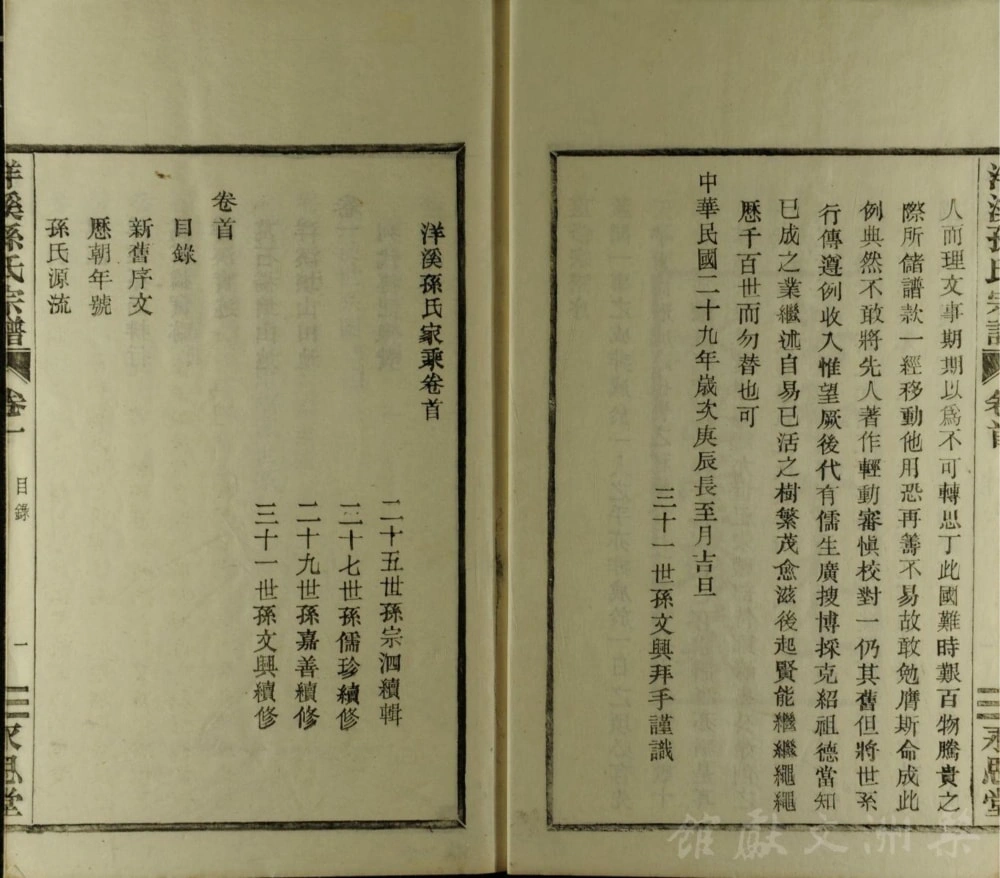 人而理文事期期以爲不可轉思丁此國難時艱百物騰貴之
際所儲譜款一經移動他用恐再籌不易故敢勉膺斯命成此
例典然不敢將先人著作輕動審愼校對一仍其舊但將世系
行傳遵例收入惟望厥後代有儒生廣搜博採克紹祖德當知
已成之業繼述自易已活之樹繁茂愈滋後起賢能繼繼繩繩
歷千百世而勿替也可
中華民國二十九年歲次庚辰長至月吉旦
三十一世孫文興拜手謹識
孫氏宗譜
卷首
永思堂
洋溪孫氏家乘卷首
二十五世孫宗泗續輯
二十七世孫儒珍續修
二十九世孫嘉善續修
三十一世孫文興續修
卷首
目錄
新舊序文
歷朝年號
孫氏源流
洋溪孫氏宗譜
卷一
目錄
一
永思堂
館獻文洲梁